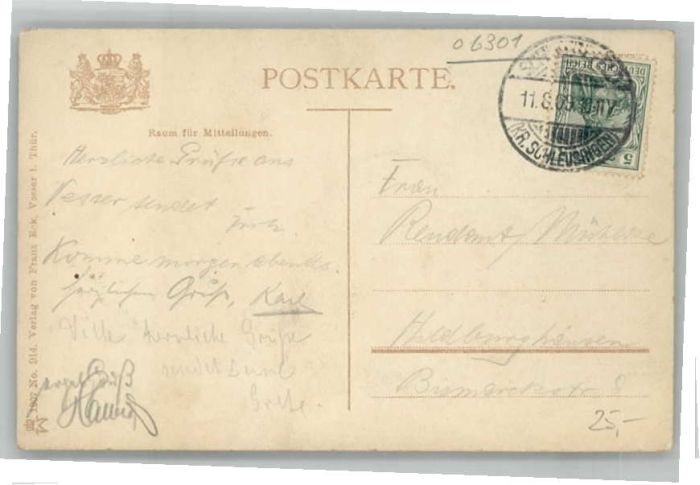 06301
POSTKARTE.
11.8.05
(KR. SCHLEUSINGEN)
DEUTSCHES REICH
5
Raum für Mitteilungen.
Herzliche Grüße aus
Vesser sendet
Komme morgen abends.
herzlichen Gruß, Karl
Viele herzliche Grüße
sendet
Grete.
Gruß
Frau
Rendant
Hildburghausen
Bismarckstr. 8
25,-
No. 914. Verlag von Franz Eck, Vesser i. Thür.